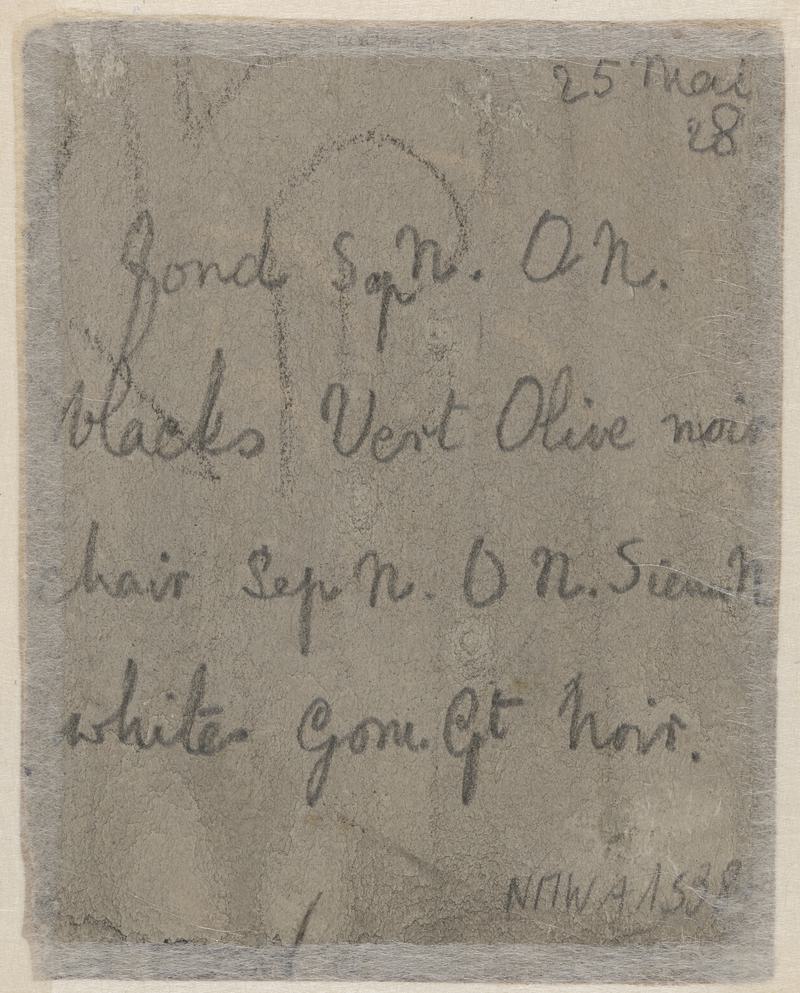 25 Mai
28
fond Sep N. O N.
blacks Vert Olive noir
hair Sep N. O N. Sien N
whites Gom. Gt Noir.
NMW A 1538